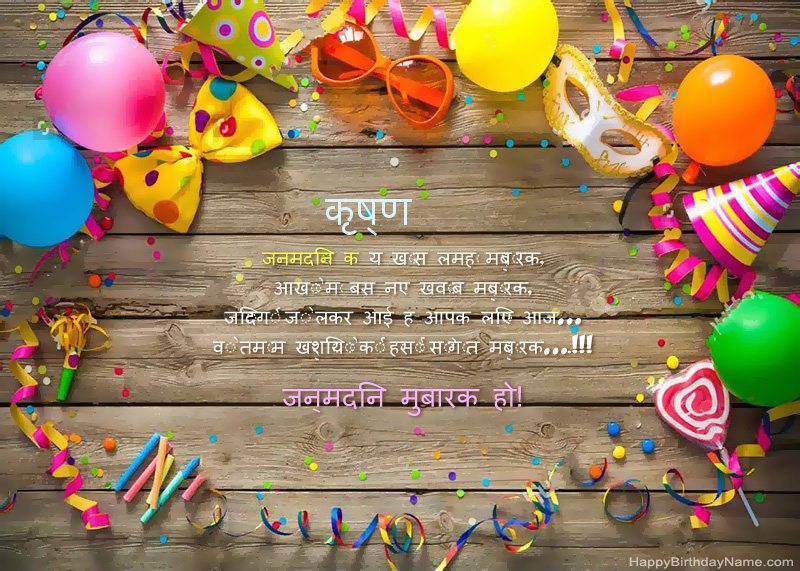 कृष्ण
जनमदिन क य ख़ास लमह मुबारक,
आखों में बस नए ख्वाब मुबारक,
जिंदगी जो लेकर आई ह आपक लिए आज...
वो तमाम खुशियों की हसीं सौगात मुबारक...!!!
जन्मदिन मुबारक हो!
HappyBirthdayName.com